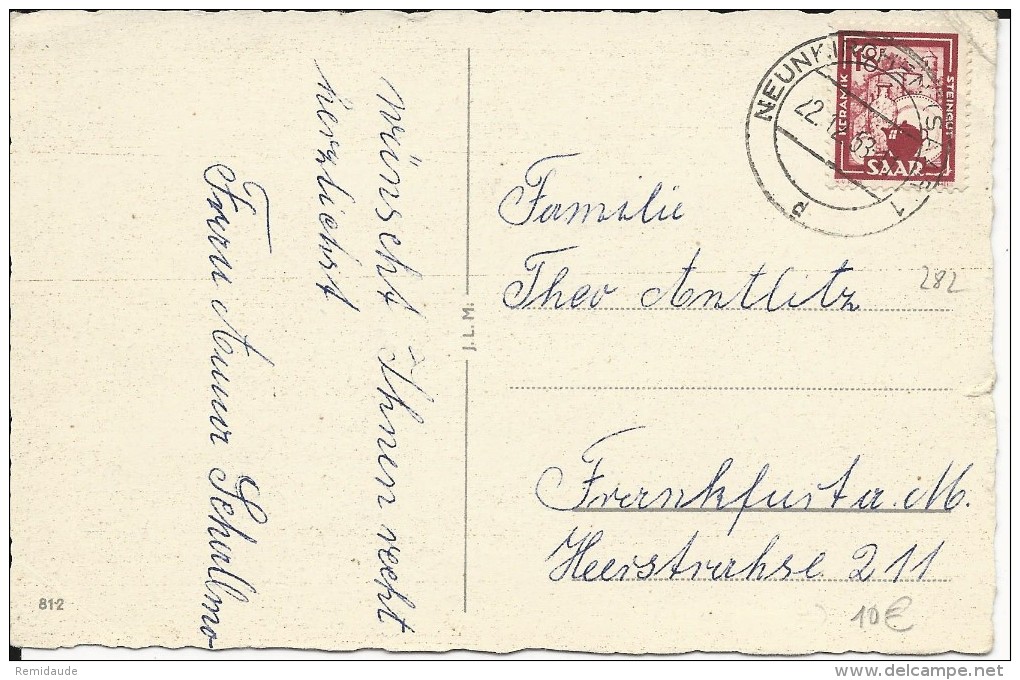 wünscht Ihnen recht
herzlichst
Frau Anna Schallmo
J.L.M.
81-2
NEUNKIRCHEN (SAAR) 1
22.12.53
d
18
KERAMIK
STEINGUT
SAAR
Familie
Theo Antlitz
282
Frankfurt a. M.
Heerstrahse 211
10€
Remidaude
www.delcampe.net